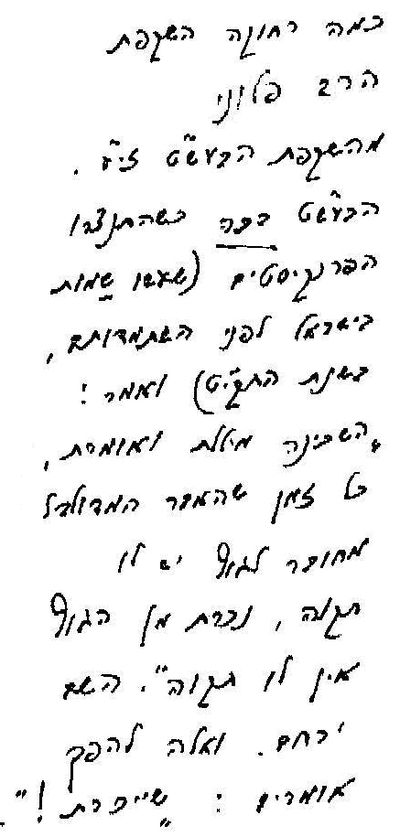 כמה רחוקה השקפת
הרב פלוני
מהשקפת הבעש"ט זי"ע.
הבעש"ט בכה כשהתנצרו
הפרנקיסטים (שעשו שמות
בישראל לפני השתמדותם,
בשנת התקי"ט) ואמר:
"השכינה מיללת ואומרת,
כל זמן שהאבר המדולדל
מחובר לגוף יש לו
תקוה, נכרת מן הגוף
אין לו תקוה". השם
ירחם. ואלה להפך
אומרים: "שייכרת!"